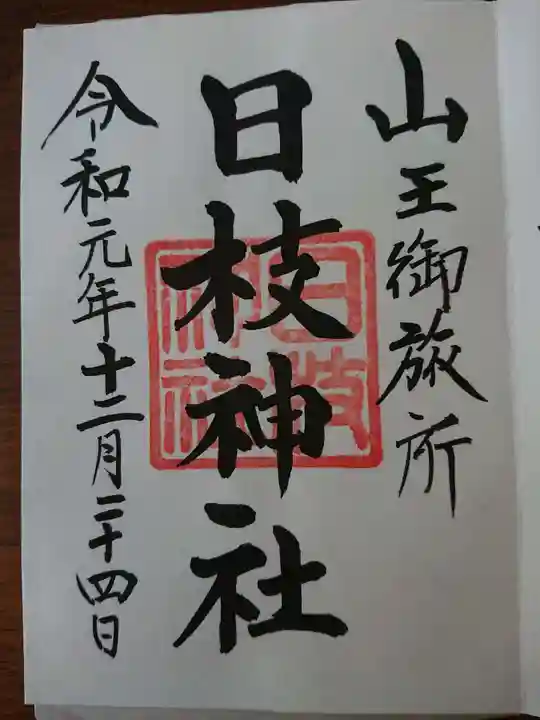 山王御旅所
日枝神社
日枝
神社
令和元年十二月二十四日